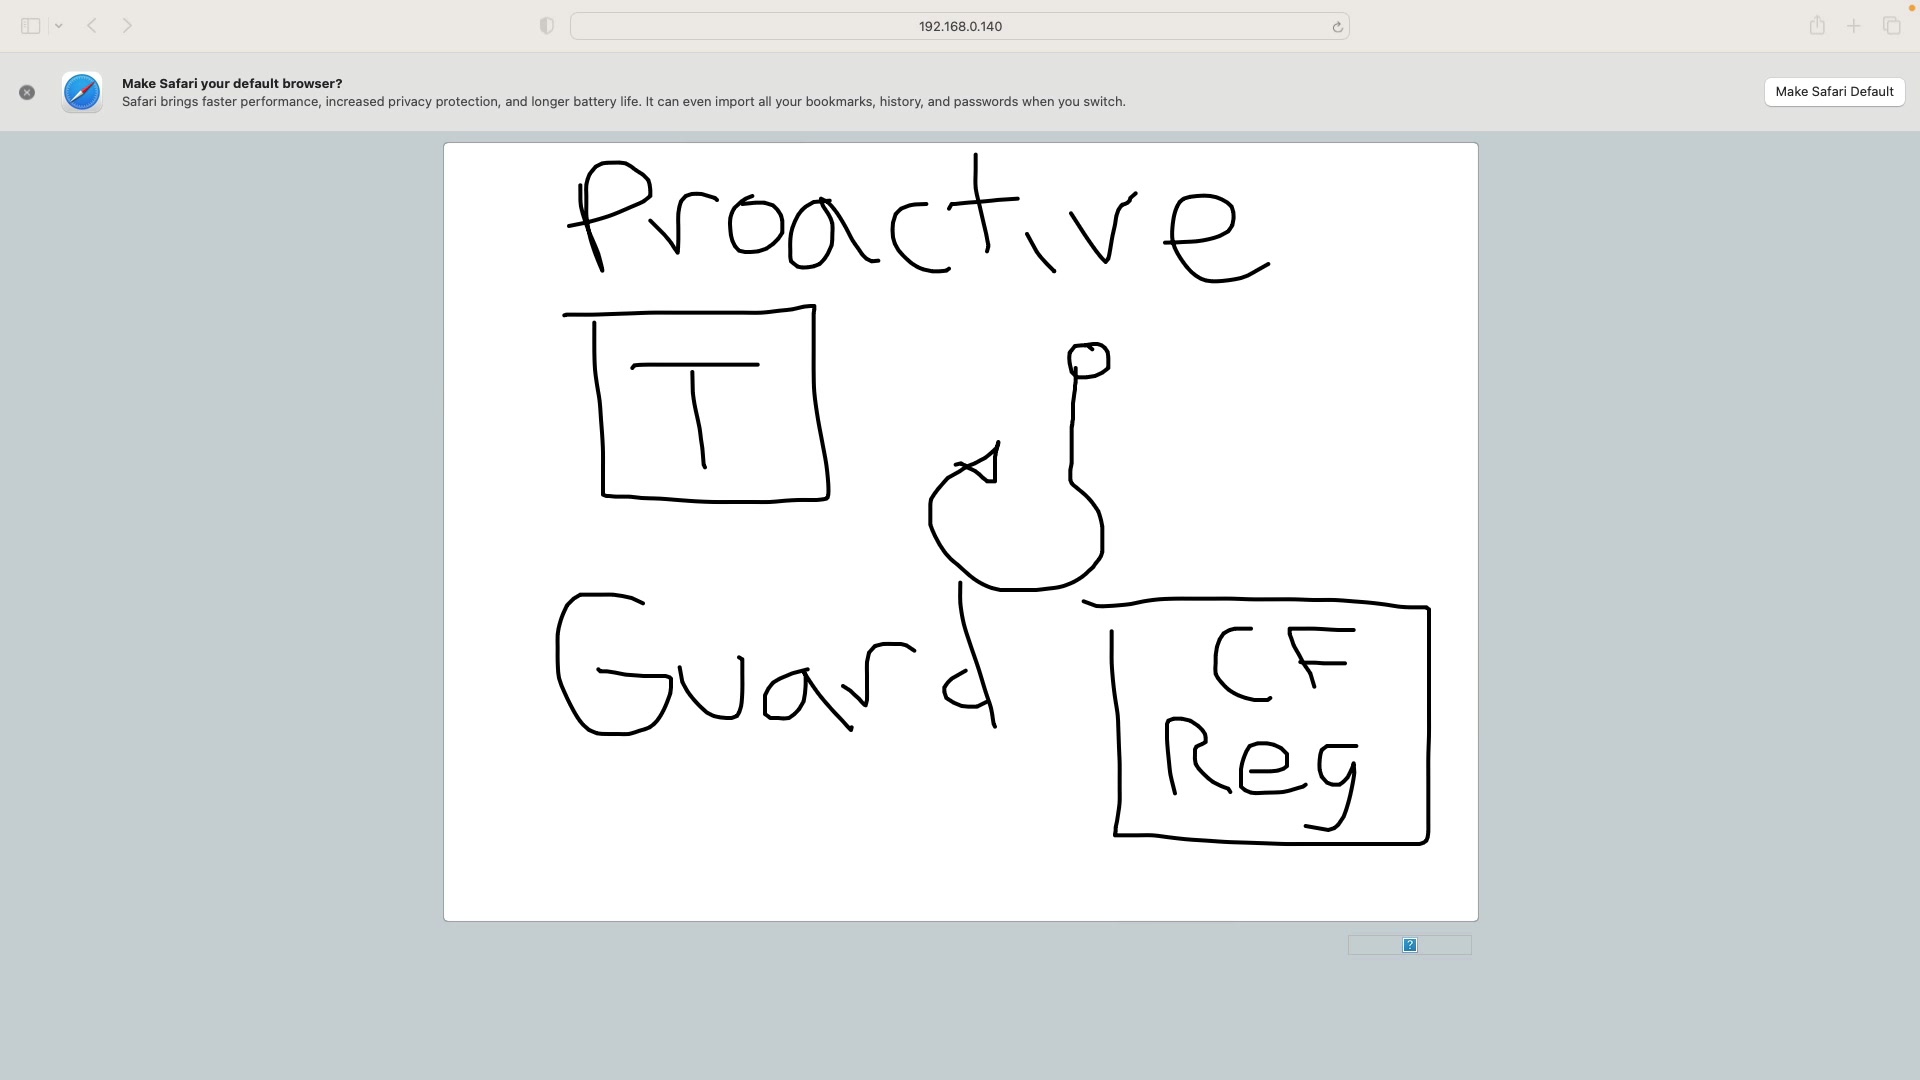 192.168.0.140
Make Safari your default browser?
Safari brings faster performance, increased privacy protection, and longer battery life. It can even import all your bookmarks, history, and passwords when you switch.
Make Safari Default
Proactive
T
Guard
CF
Reg
?